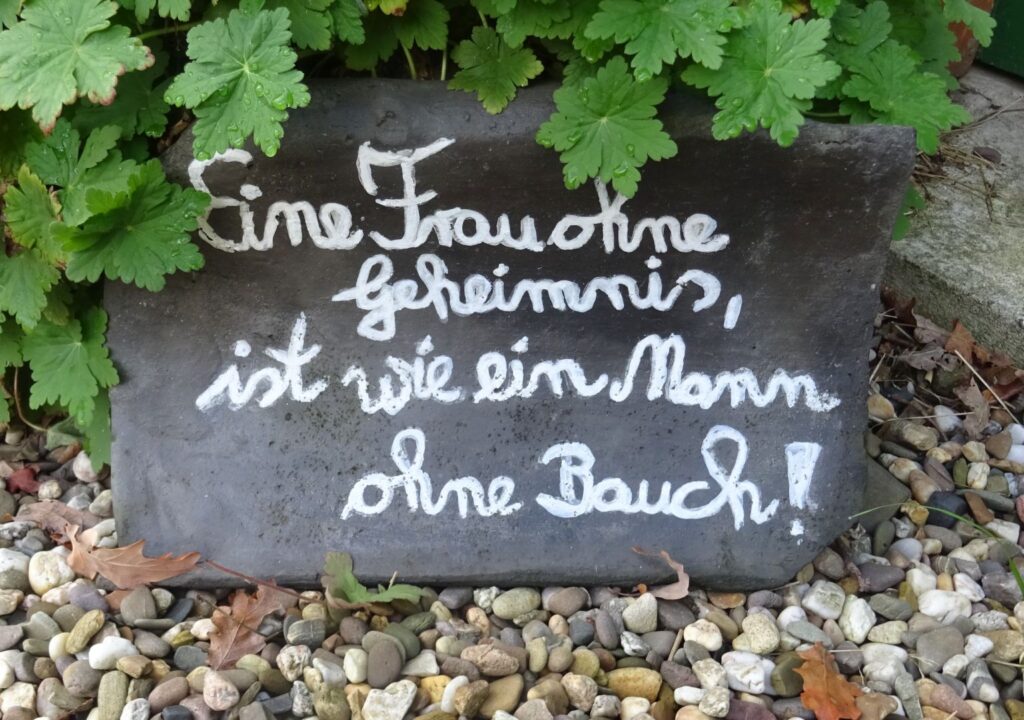 Eine Frau ohne
Geheimnis,
ist wie ein Mann
ohne Bauch!